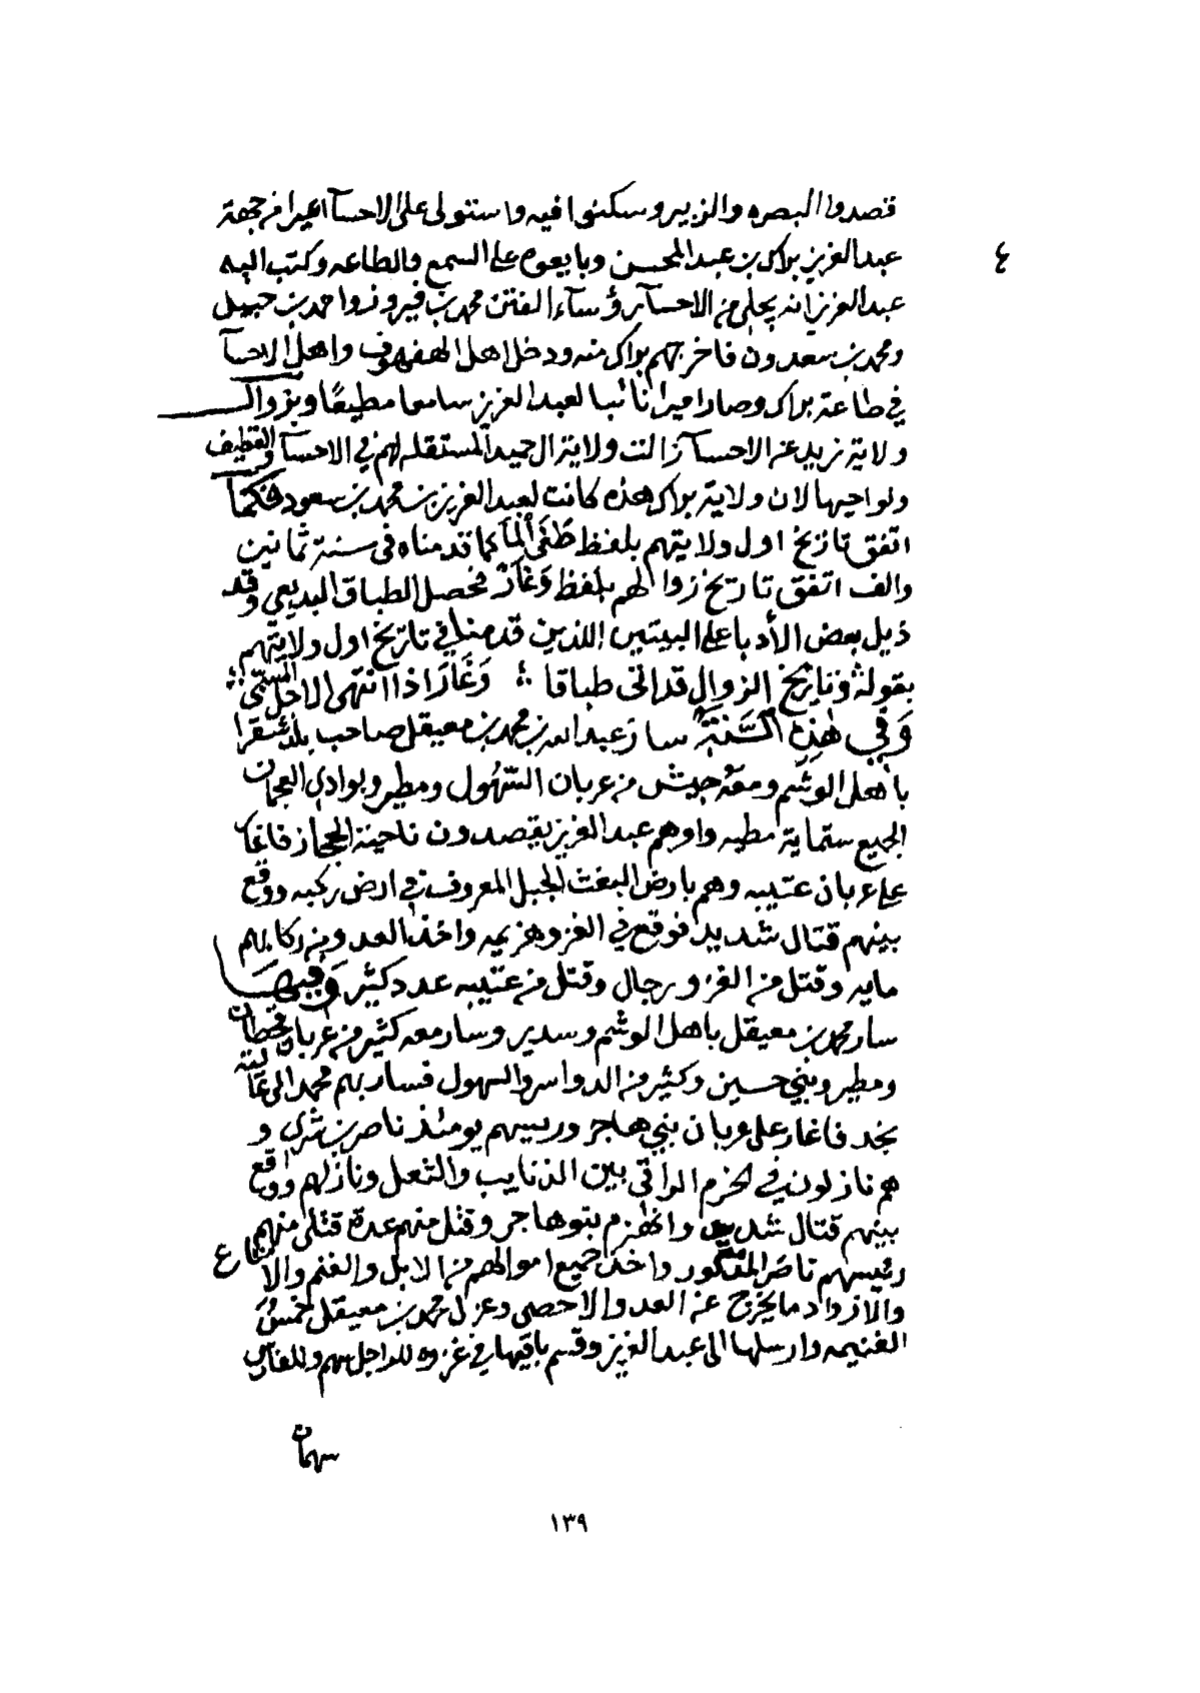 قصدوا البصره والزبير وسكنوا فيه واستولى على الاحسآ اميرا من جهة
عبدالعزيز براك بن عبدالمحسن وبايعوه على السمع والطاعه وكتب اليه
عبدالعزيز انه يجلي من الاحسآ رؤسآء الفتن محمد بن فيروز واحمد بن حبيل
ومحمد بن سعدون فاخرجهم براك منه ودخل اهل الهفهوف واهل الاحسآ
في طاعة براك وصار اميرا نائبا لعبدالعزيز سامعا مطيعًا وبزوال
ولاية زيد عن الاحسآ زالت ولاية ال حميد المستقله لهم في الاحسآ والقطيف
ونواحيها لان ولاية براك هذه كانت لعبدالعزيز بن محمد بن سعود فكما
اتفق تاريخ اول ولايتهم بلفظ طَغَى ألمآ كما قدمناه في سنة ثمانين
والف اتفق تاريخ زوالهم بلفظ وَغَارَ فحصل الطباق البديعي وقد
ذيل بعض الأدبا على البيتين اللذين قدمنا في تاريخ اول ولايتهم
بقوله وتاريخ الزوال قداتى طباقا ؛ وَغَارَ اذا انتهى الاجل المسمّى ؛
وَفِي هٰذِهِ السَّنَةِ سار عبدالله بن محمد بن معيقل صاحب بلد شقرا
باهل الوشم ومعه جيش من عربان السُّهُول ومطير وبوادي العجمان
الجميع ستماية مطيه وامرهم عبدالعزيز يقصدون ناحية الحجاز فاغار
على عربان عتيبه وهم بارض البغث الجبل المعروف في ارض ركبه ووقع
بينهم قتال شديد فوقع في الغزو هزيمه واخذ العدو من ركابهم
مايه وقتل من الغزو رجال وقتل من عتيبه عدد كثير وَفِيهَا
سار محمد بن معيقل باهل الوشم وسدير وسار معه كثير من عربان قحطان
ومطير وبني حسين وكثير من الدواسر والسهول فسار بهم محمد الى عالية
نجد فاغار على عربان بني هاجر ورييسهم يومئذ ناصر بن شرى و
هم نازلون في الحزم الراقي بين الذنايب والثعل ونازلهم ووقع
بينهم قتال شديد وانهزم بنوهاجر وقتل منهم عدة قتلى منهم
رئيسهم ناصر المذكور واخذ جميع اموالهم من الابل والغنم والامتاع
والازواد مايخرج عن العد والاحصى وعزل محمد بن معيقل خمسُ
الغنيمه وارسلها الى عبدالعزيز وقسم باقيها في غزوه للراجل سهم وللفارس
سهمان
١٣٩